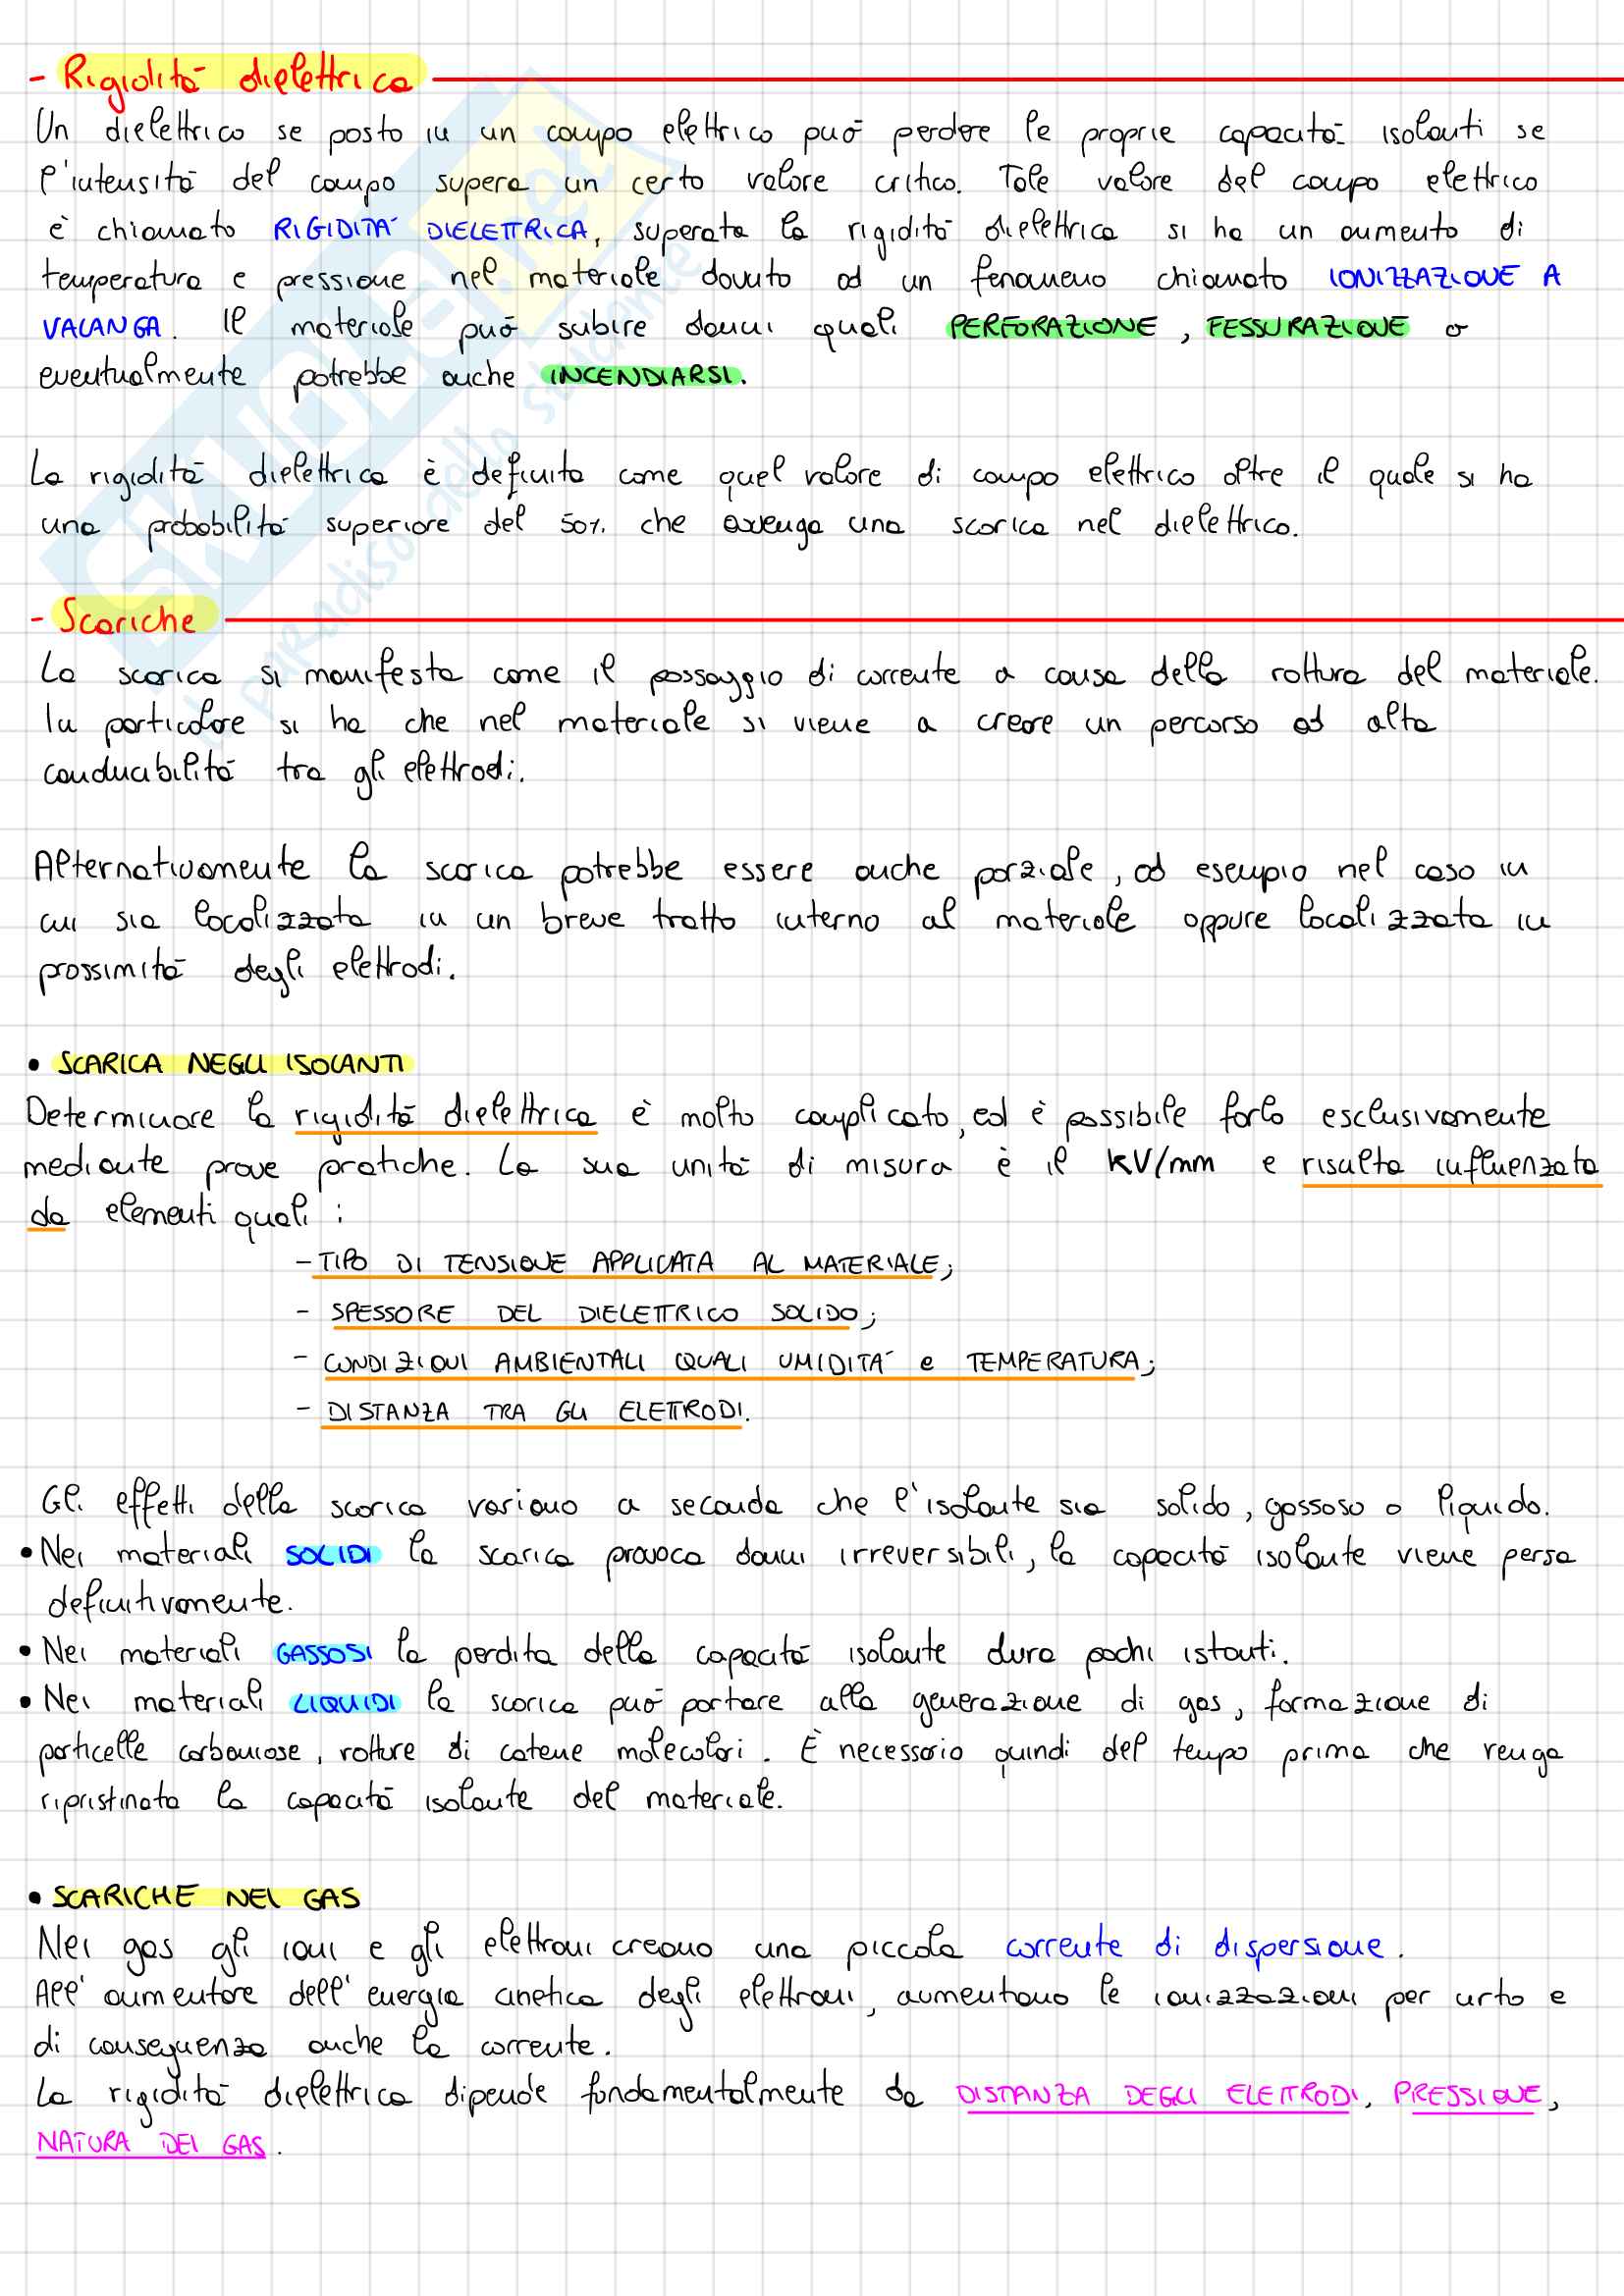 - Rigidità dielettrica
Un dielettrico se posto in un campo elettrico può perdere le proprie capacità isolanti se
l'intensità del campo supera un certo valore critico. Tale valore del campo elettrico
è chiamato RIGIDITA' DIELETTRICA, superata la rigidità dielettrica si ha un aumento di
temperatura e pressione nel materiale dovuto ad un fenomeno chiamato IONIZZAZIONE A
VALANGA. Il materiale può subire danni quali PERFORAZIONE, FESSURAZIONE o
eventualmente potrebbe anche INCENDIARSI.
La rigidità dielettrica è definita come quel valore di campo elettrico oltre il quale si ha
una probabilità superiore del 50% che avvenga una scarica nel dielettrico.
- Scariche
La scarica si manifesta come il passaggio di corrente a causa della rottura del materiale.
In particolare si ha che nel materiale si viene a creare un percorso ad alta
conducibilità tra gli elettrodi.
Alternativamente la scarica potrebbe essere anche parziale, ad esempio nel caso in
cui sia localizzata in un breve tratto interno al materiale oppure localizzata in
prossimità degli elettrodi.
• SCARICA NEGLI ISOLANTI
Determinare la rigidità dielettrica è molto complicato, ed è possibile farlo esclusivamente
mediante prove pratiche. La sua unità di misura è il KV/mm e risulta influenzata
da elementi quali:
- TIPO DI TENSIONE APPLICATA AL MATERIALE;
- SPESSORE DEL DIELETTRICO SOLIDO;
- CONDIZIONI AMBIENTALI QUALI UMIDITA' e TEMPERATURA;
- DISTANZA TRA GLI ELETTRODI.
Gli effetti della scarica variano a seconda che l'isolante sia solido, gassoso o liquido.
• Nei materiali SOLIDI la scarica provoca danni irreversibili, la capacità isolante viene persa
definitivamente.
• Nei materiali GASSOSI la perdita della capacità isolante dura pochi istanti.
• Nei materiali LIQUIDI la scarica può portare alla generazione di gas, formazione di
particelle carboniose, rotture di catene molecolari. È necessario quindi del tempo prima che venga
ripristinata la capacità isolante del materiale.
• SCARICHE NEI GAS
Nei gas gli ioni e gli elettroni creano una piccola corrente di dispersione.
All'aumentare dell'energia cinetica degli elettroni, aumentano le ionizzazioni per urto e
di conseguenza anche la corrente.
La rigidità dielettrica dipende fondamentalmente da DISTANZA DEGLI ELETTRODI, PRESSIONE,
NATURA DEI GAS.